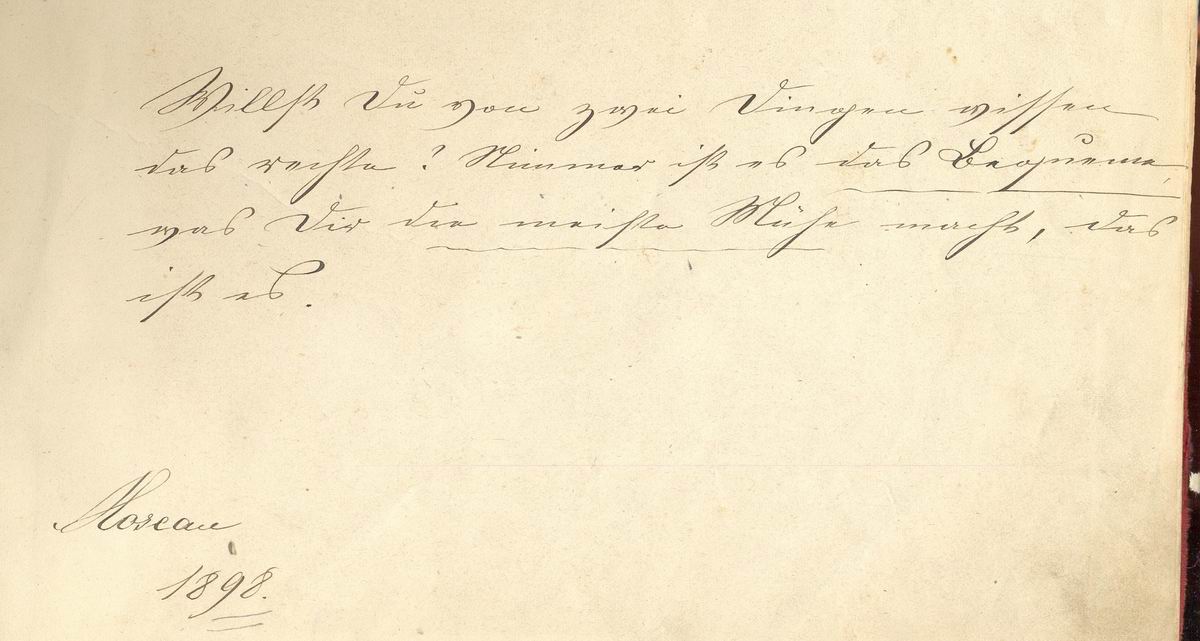 Willst Du von zwei Dingen wissen
das rechte? Nimmer ist es das Bequeme,
was Dir die meiste Mühe macht, das
ist es.
Moscau
1898.